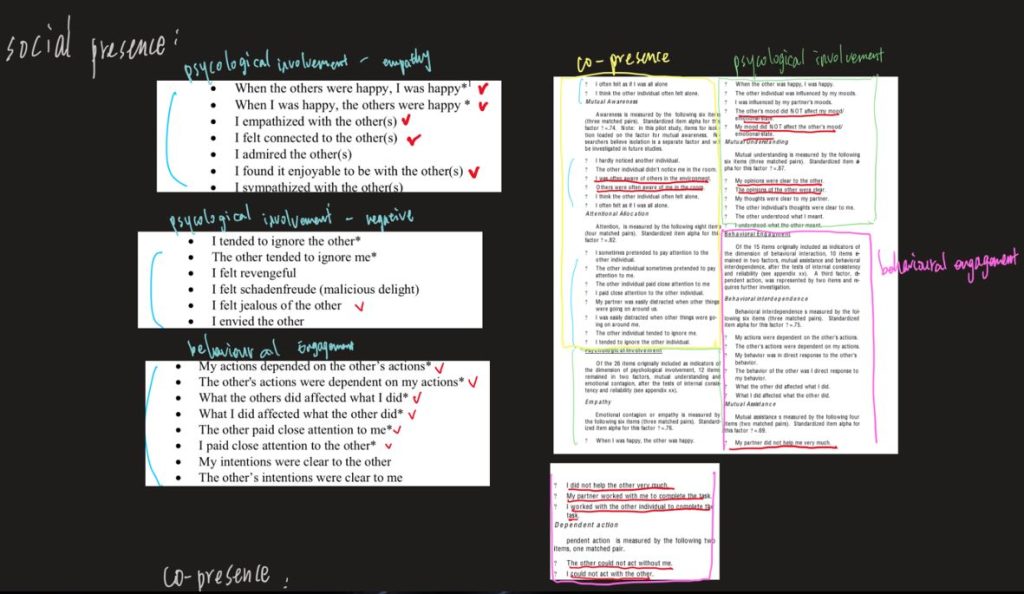 social presence:
psycological involvement - empathy
• When the others were happy, I was happy*¹
• When I was happy, the others were happy *
• I empathized with the other(s)
• I felt connected to the other(s)
• I admired the other(s)
• I found it enjoyable to be with the other(s)
• I sympathized with the other(s)
psycological involvement - negative
• I tended to ignore the other*
• The other tended to ignore me*
• I felt revengeful
• I felt schadenfreude (malicious delight)
• I felt jealous of the other
• I envied the other
behavioural Engagement
• My actions depended on the other's actions*
• The other's actions were dependent on my actions*
• What the others did affected what I did*
• What I did affected what the other did*
• The other paid close attention to me*
• I paid close attention to the other*
• My intentions were clear to the other
• The other's intentions were clear to me
co-presence:
co-presence
? I often felt as if I was all alone
? I think the other individual often felt alone.
Mutual Awareness
Awareness is measured by the following six items
(three matched pairs). Standardized item alpha for this
factor ?=.74. Note: In this pilot study, items for isola-
tion loaded on the factor for mutual awareness.
searchers believe isolation is a separate factor and
be investigated in future studies.
? I hardly noticed another individual.
? The other individual didn't notice me in the room.
? I was often aware of others in the environment.
? Others were often aware of me in the room.
? I think the other individual often felt alone.
? I often felt as if I was all alone.
Attentional Allocation
Attention, is measured by the following eight items
(four matched pairs). Standardized item alpha for this
factor ?=.82.
? I sometimes pretended to pay attention to the
other individual.
? The other individual sometimes pretended to pay
attention to me.
? The other individual paid close attention to me
? I paid close attention to the other individual.
? My partner was easily distracted when other things
were going on around us.
? I was easily distracted when other things were go-
ing on around me.
? The other individual tended to ignore me.
? I tended to ignore the other individual.
Psychological Involvement
Of the 26 items originally included as indicators of
the dimension of psychological involvement, 12 items
remained in two factors, mutual understanding and
emotional contagion, after the tests of internal consis-
tency and reliability (see appendix xx).
Empathy
Emotional contagion or empathy is measured by
the following six items (three matched pairs). Standard-
ized item alpha for this factor ?=.76.
? When I was happy, the other was happy.
psycological involvement
? When the other was happy, I was happy.
? The other individual was influenced by my moods.
? I was influenced by my partner's moods.
? The other's mood did NOT affect my mood/
emotional-state.
? My mood did NOT affect the other's mood/
emotional-state.
Mutual Understanding
Mutual understanding is measured by the following
six items (three matched pairs). Standardized item a-
pha for this factor ?=.87.
? My opinions were clear to the other.
? The opinions of the other were clear.
? My thoughts were clear to my partner.
? The other individual's thoughts were clear to me.
? The other understood what I meant.
? I understood what the other meant.
behavioural engagement
Behavioral Engagment
Of the 15 items originally included as indicators of
the dimension of behavioral interaction, 10 items re-
mained in two factors, mutual assistance and behavioral
interdependence, after the tests of internal consistency
and reliability (see appendix xx). A third factor, de-
pendent action, was represented by two items and re-
quires further investigation.
Behavioral interdependence
Behavioral interdependence s measured by the fol-
lowing six items (three matched pairs). Standardized
item alpha for this factor ?=.75.
? My actions were dependent on the other's actions.
? The other's actions were dependent on my actions.
? My behavior was in direct response to the other's
behavior.
? The behavior of the other was I direct response to
my behavior.
? What the other did affected what I did.
? What I did affected what the other did.
Mutual Assistance
Mutual assistance s measured by the following four
items (two matched pairs). Standardized item alpha for
this factor ?=.69.
? My partner did not help me very much.
? I did not help the other very much.
? My partner worked with me to complete the task.
? I worked with the other individual to complete the
task.
Dependent action
pendent action is measured by the following two
items, one matched pair.
? The other could not act without me.
? I could not act with the other.